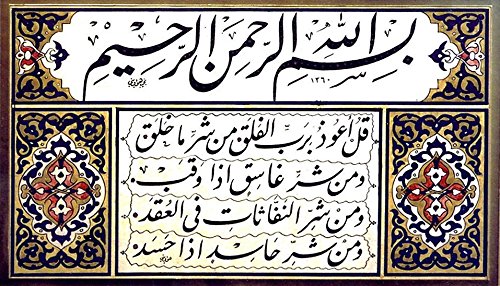 بسم الله الرحمن الرحيم
١٢٦٠
قل اعوذ برب الفلق من شر ما خلق
ومن شر غاسق اذا وقب
ومن شر النفاثات فى العقد
ومن شر حاسد اذا حسد